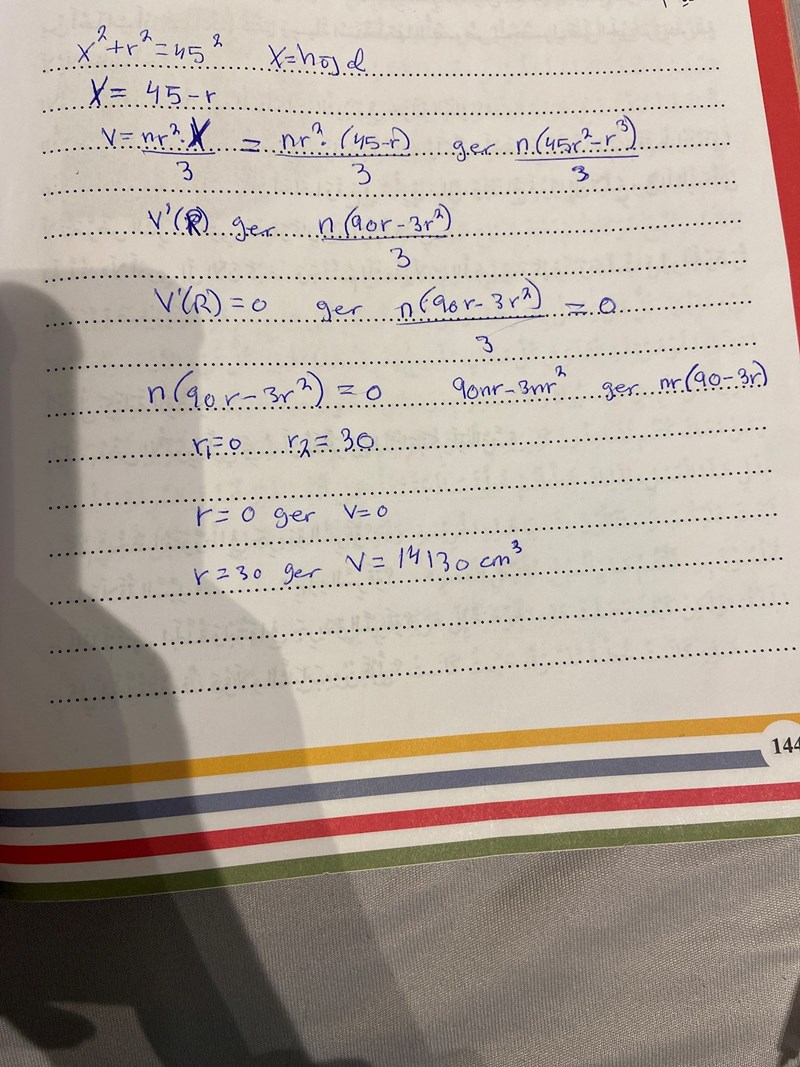 x² + r² = 45² X = höjd
X = 45 - r
V = nr²·X/3 = nr²·(45-r)/3 ger n(45r² - r³)/3
V'(R) ger n(90r - 3r²)/3
V'(R) = 0 ger n(90r - 3r²)/3 = 0
n(90r - 3r²) = 0 90nr - 3nr² ger nr(90 - 3r)
r₁ = 0 r₂ = 30
r = 0 ger V = 0
r = 30 ger V = 14130 cm³
144